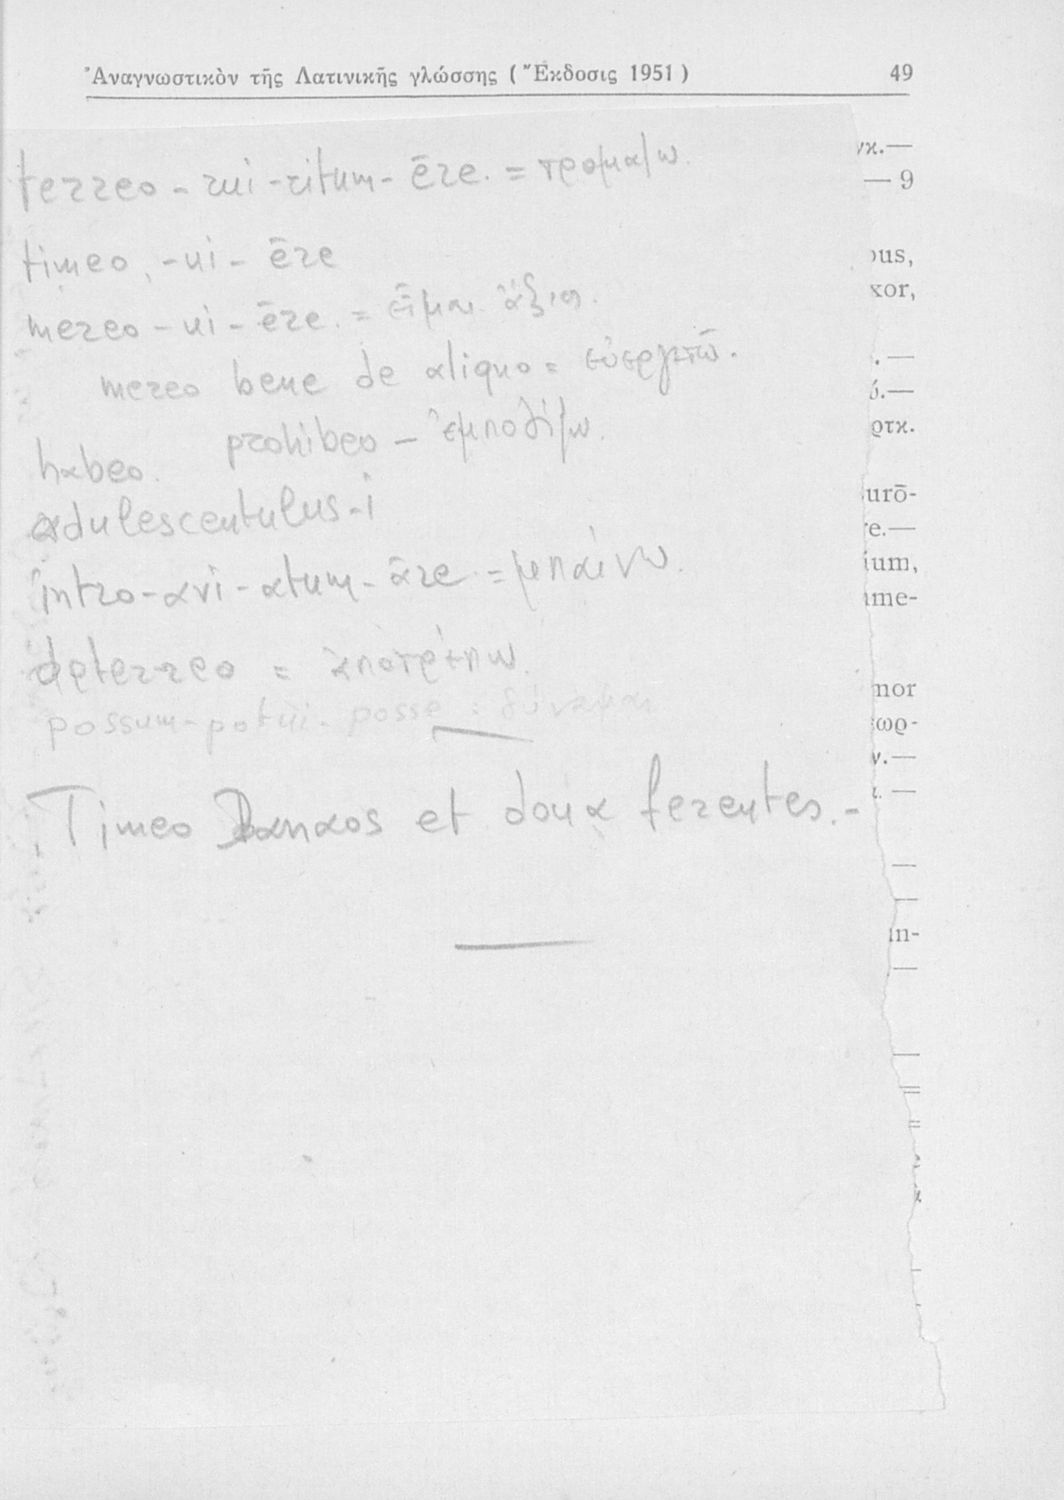 Ἀναγνωστικὸν τῆς Λατινικῆς γλώσσης ( Ἔκδοσις 1951 ) 49
terreo - rui - ritum - ēre. = τρομαζω.
νκ.—
— 9
timeo, -ui - ēre
ous,
mereo - ui - ēre. = εἶμαι ἄξιος.
xor,
mereo bene de aliquo = εὐεργετῶ.
. —
ύ.—
prohibeo — ἐμποδίζω.
ρτκ.
habeo.
adulescentulus - i
urō-
e.—
intro - avi - atum - āre = μπαίνω.
ium,
ime-
deterreo = ἀποτρέπω.
nor
possum - potui - posse = δύναμαι
ωρ-
ν.—
. —
Timeo Danaos et dona ferentes. -
—
—
in-
—
—